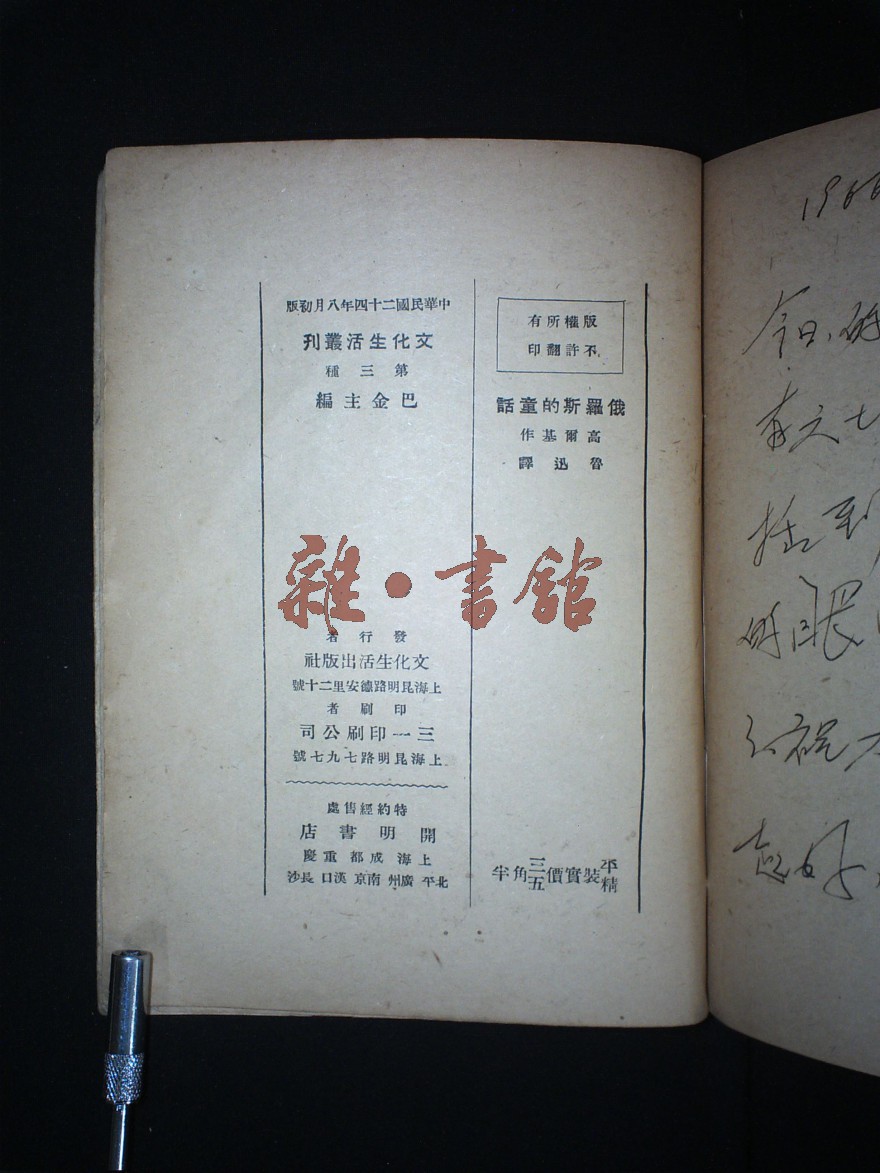 版權所有
不許翻印
俄羅斯的童話
高爾基作
魯迅譯
平精裝實價角半
中華民國二十四年八月初版
文化生活叢刊
第三種
巴金主編
雜·書館
發行者
文化生活出版社
上海昆明路德安里二十號
印刷者
三一印刷公司
上海昆明路七九七號
特約經售處
開明書店
上海成都重慶
北平廣州南京漢口長沙
今日
眼
祝